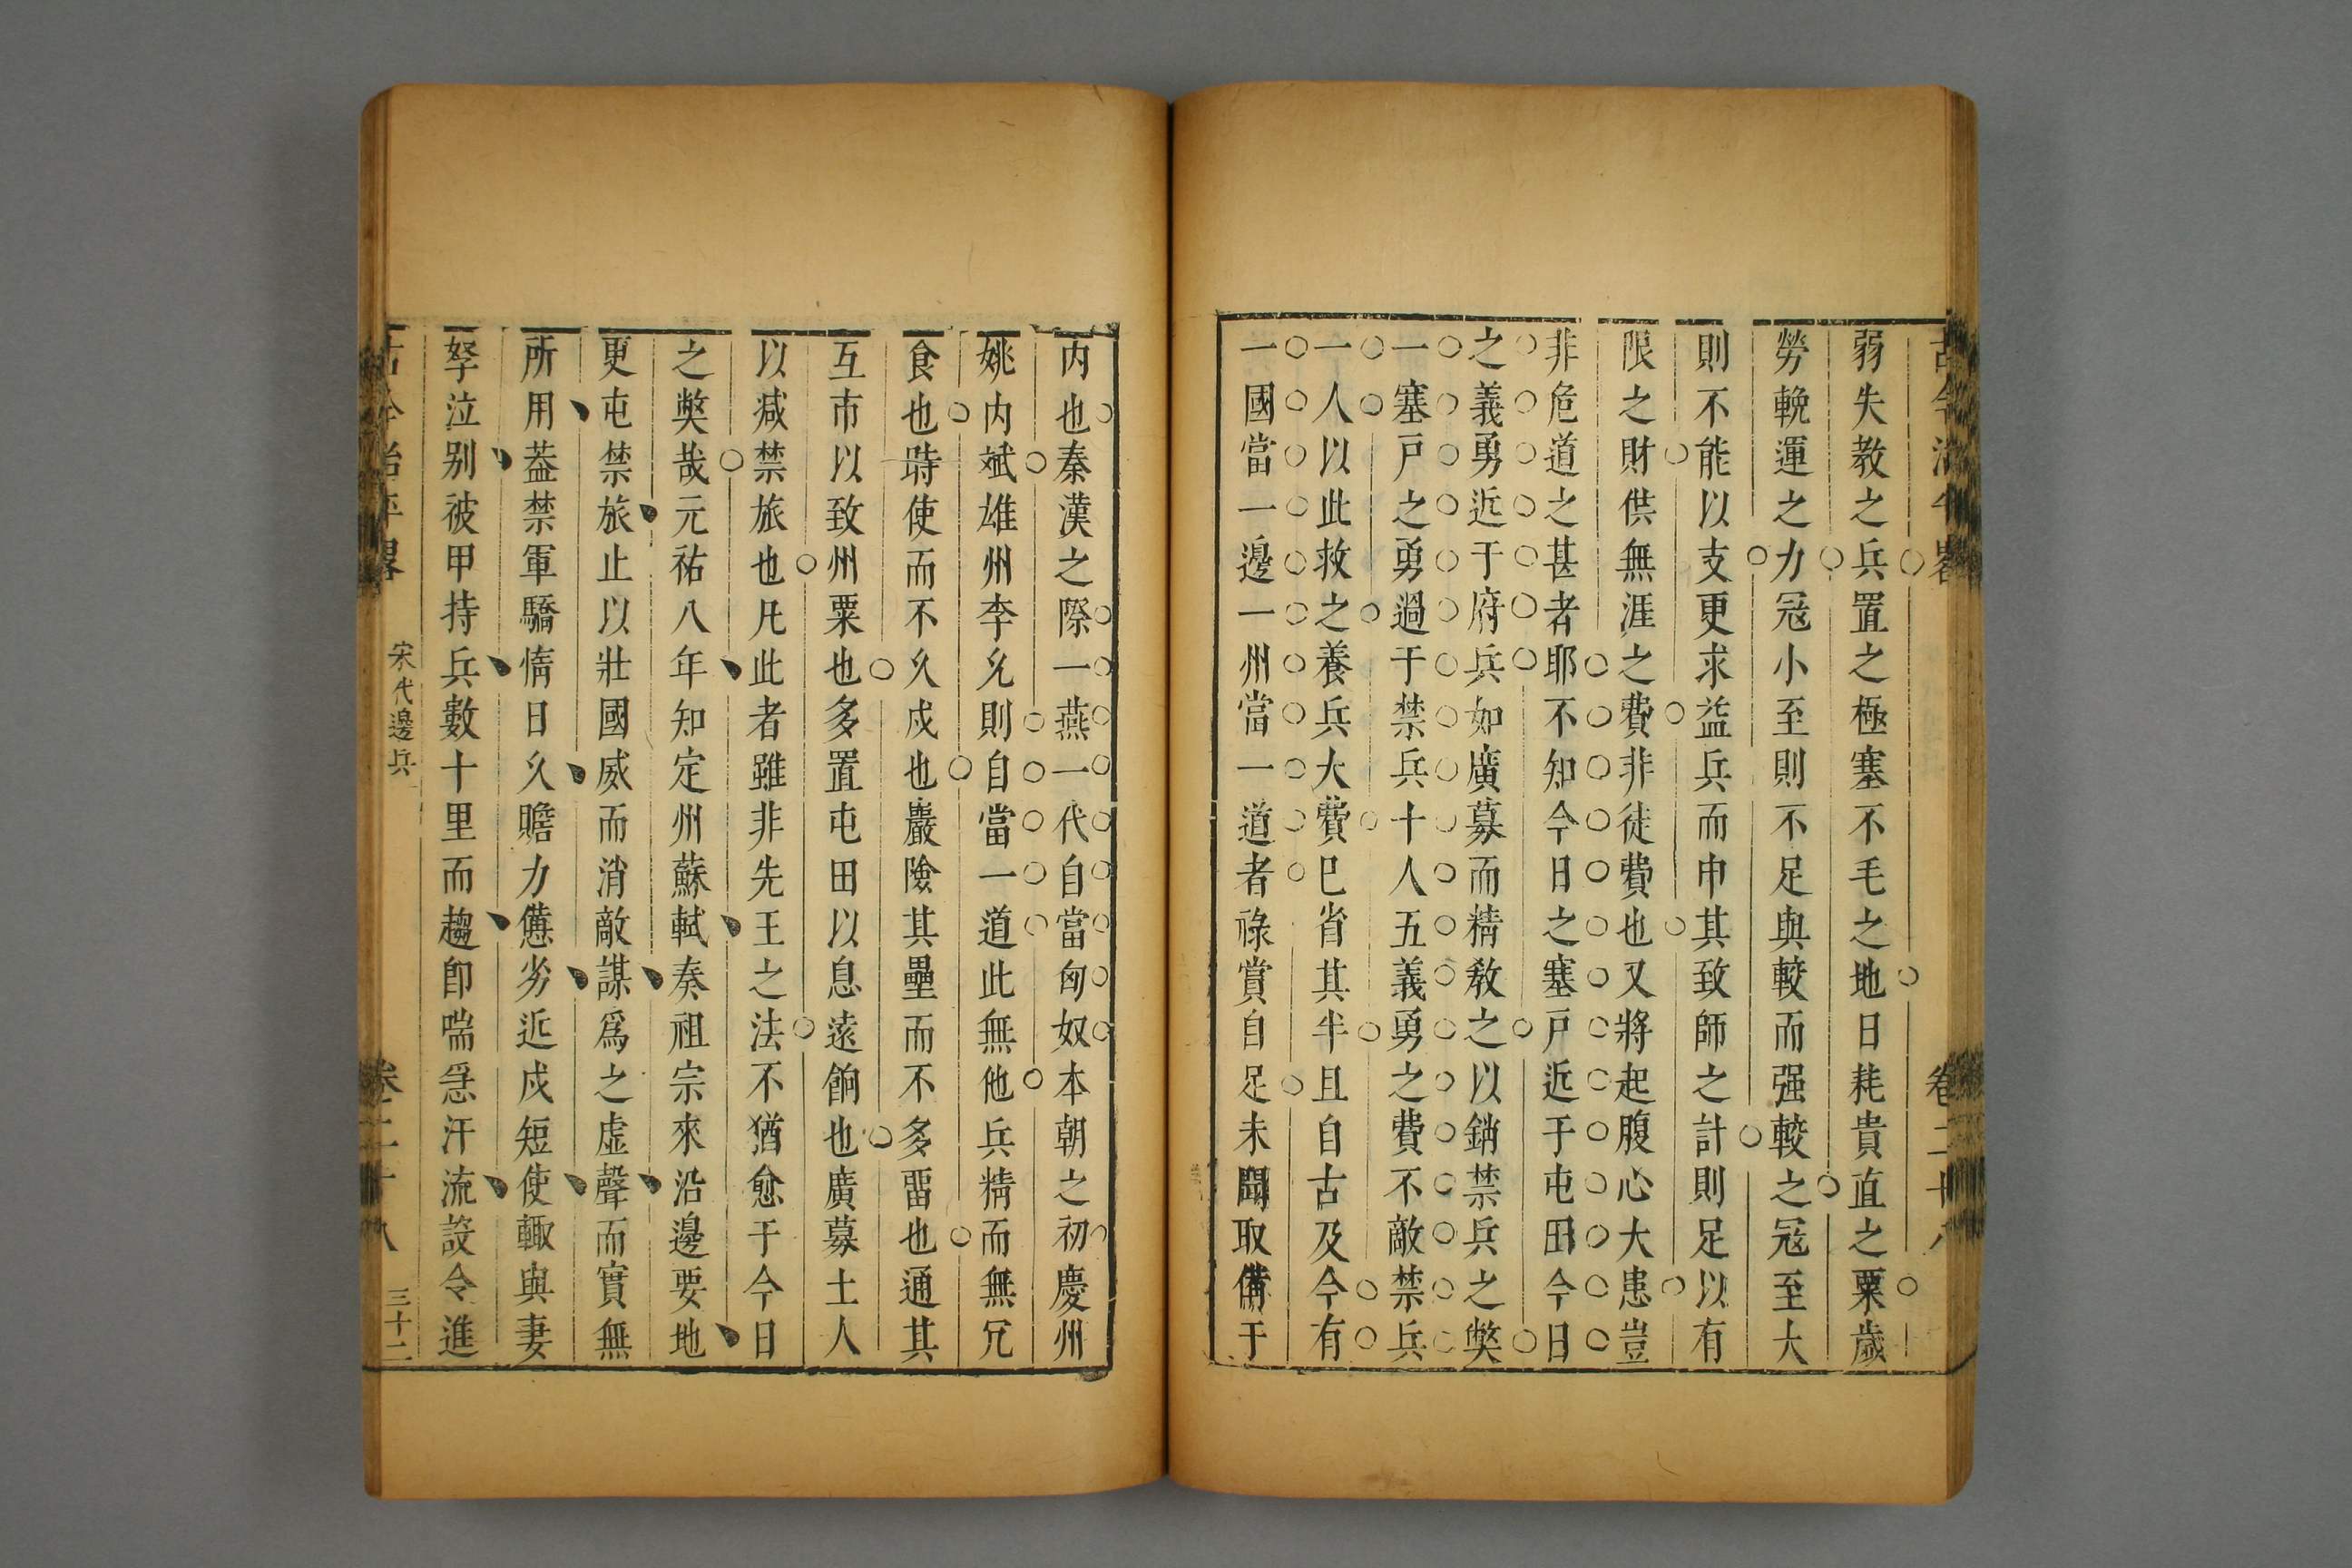 弱失教之兵置之極塞不毛之地日耗貴直之粟歲
勞輓運之力冦小至則不足與較而强較之冦至大
則不能以支更求益兵而申其致師之計則足以有
限之財供無涯之費非徒費也又將起腹心大患豈
非危道之甚者耶不知今日之塞戸近于屯田今日
之義勇近于府兵如廣募而精教之以銷禁兵之獘
一塞戸之勇過于禁兵十人五義勇之費不敵禁兵
一人以此救之養兵大費巳省其半且自古及今有
一國當一邊一州當一道者祿賞自足未聞取備于
内也秦漢之際一燕一代自當匈奴本朝之初慶州
姚内斌雄州李允則自當一道此無他兵精而無冗
食也時使而不乆戍也嚴險其壘而不多畱也通其
互市以致州粟也多置屯田以息遠餉也廣募土人
以减禁旅也凡此者雖非先王之法不猶愈于今日
之獘哉元祐八年知定州蘇軾奏祖宗來沿邊要地
更屯禁旅止以壯國威而消敵謀爲之虛聲而實無
所用葢禁軍驕惰日乆膽力憊劣近戍短使輙與妻
孥泣别被甲持兵數十里而趨卽喘急汗流設令進
宋代邊兵
卷二十八
三十二